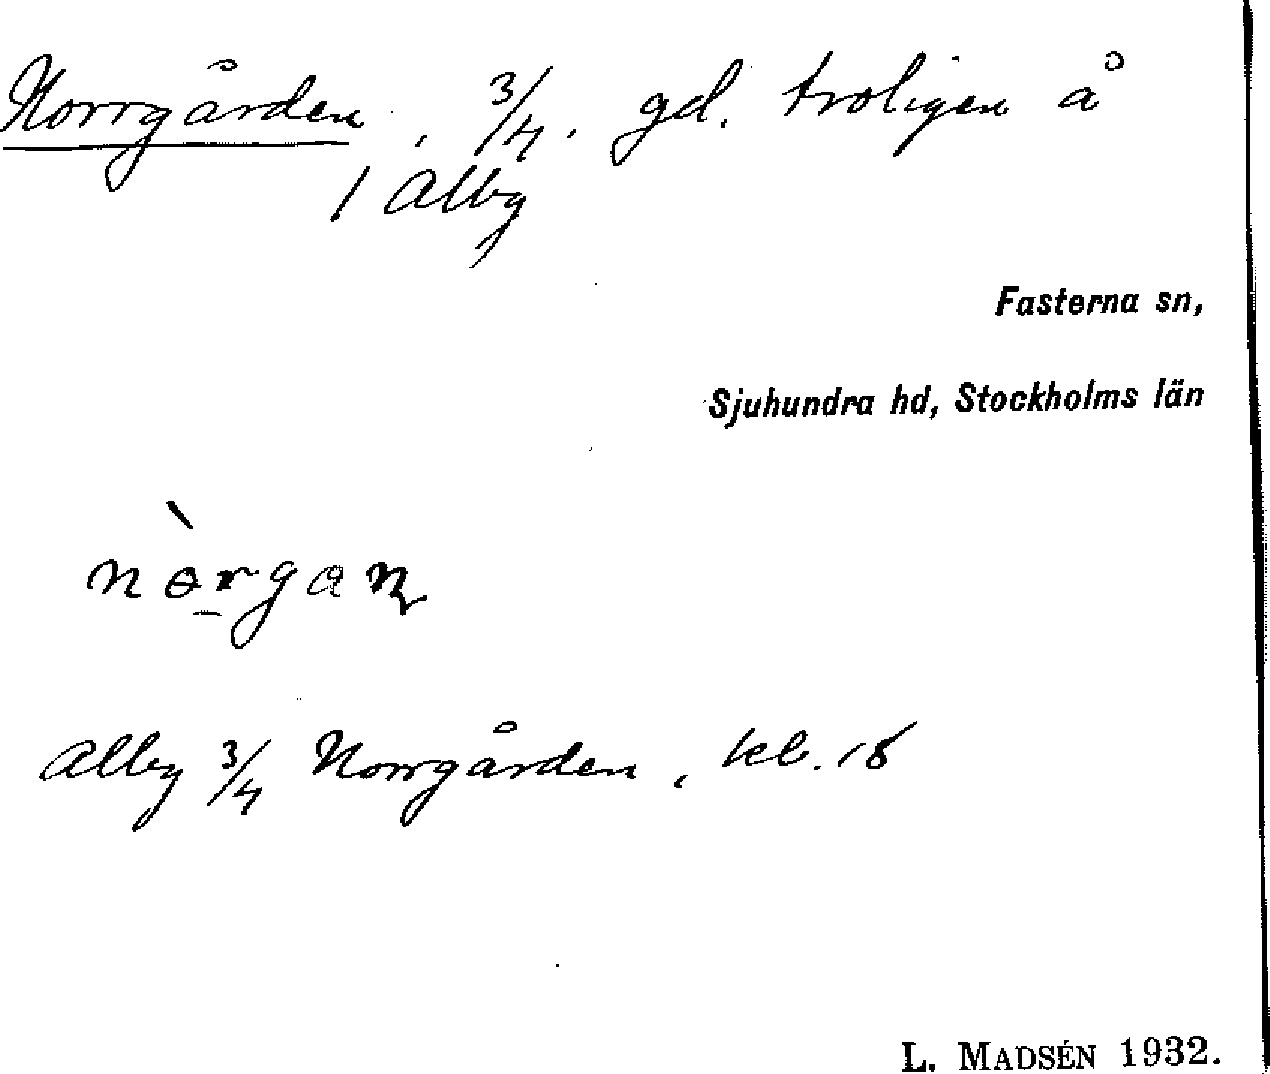 Norrgården, 3/4. gd. troligen å
1 Alby
Fasterna sn,
Sjuhundra hd, Stockholms län
Alby 3/4 Norrgården, kb. 18
L. MADSÉN 1932.